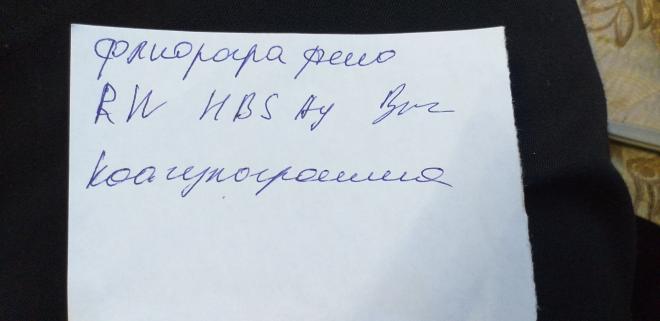 флюорография
RW HBS Ag Вич
коагулограмма